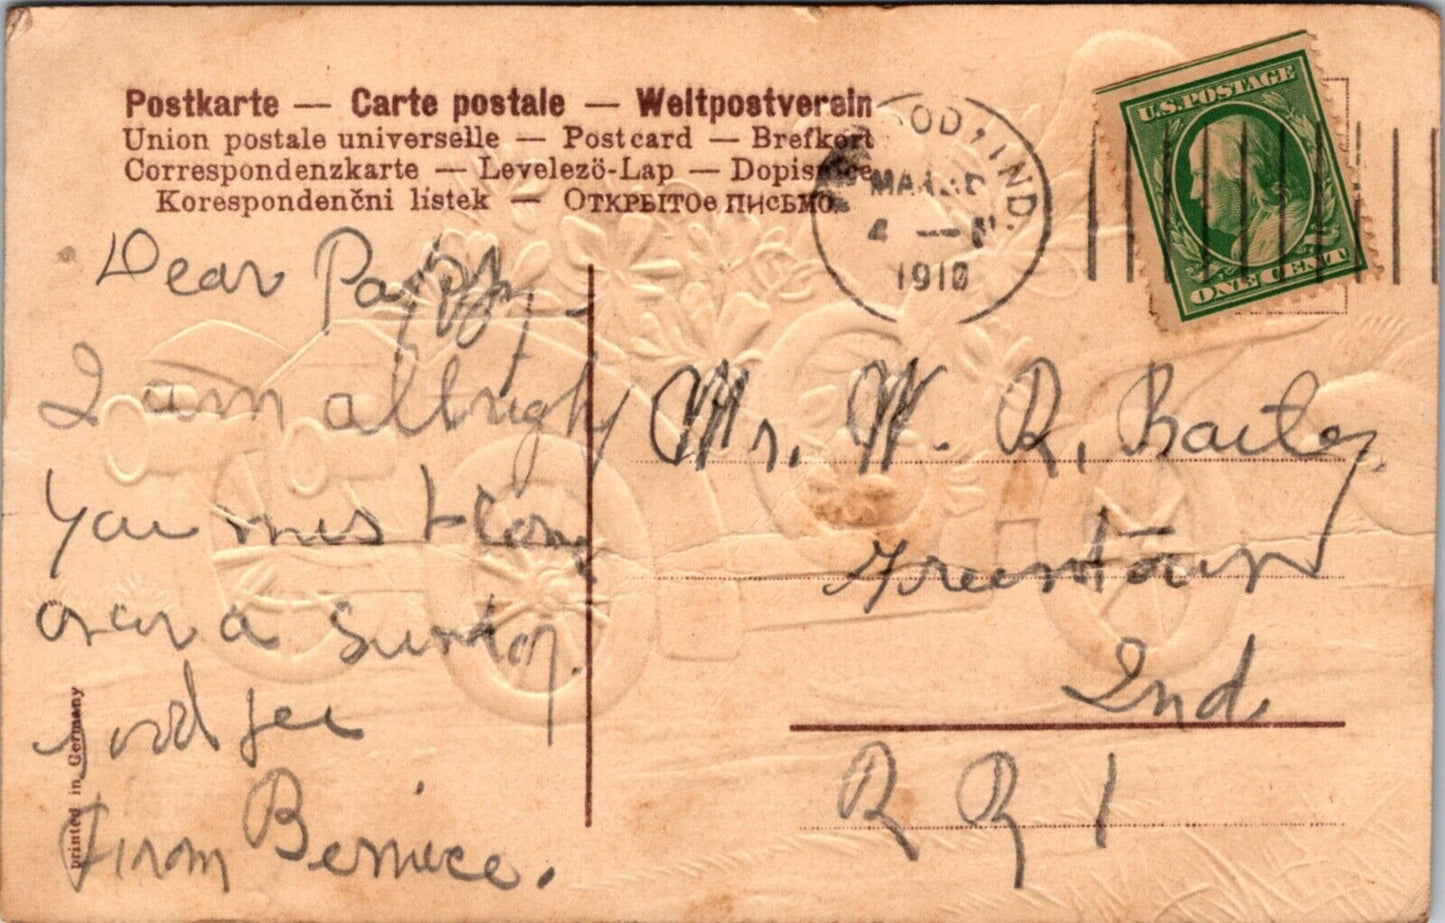 Postkarte — Carte postale — Weltpostverein
Union postale universelle — Postcard — Brefkort
Correspondenzkarte — Levelezö-Lap — Dopisnice
Korespondenčni lístek — Открытое письмо
OOD, IND.
4
1910
U.S. POSTAGE
ONE CENT
Dear
I am allright
you mist
over a Sunday.
good
From Bernice.
Mr. W. R. Bailey
Greentown
Ind.
R R 1
printed in Germany